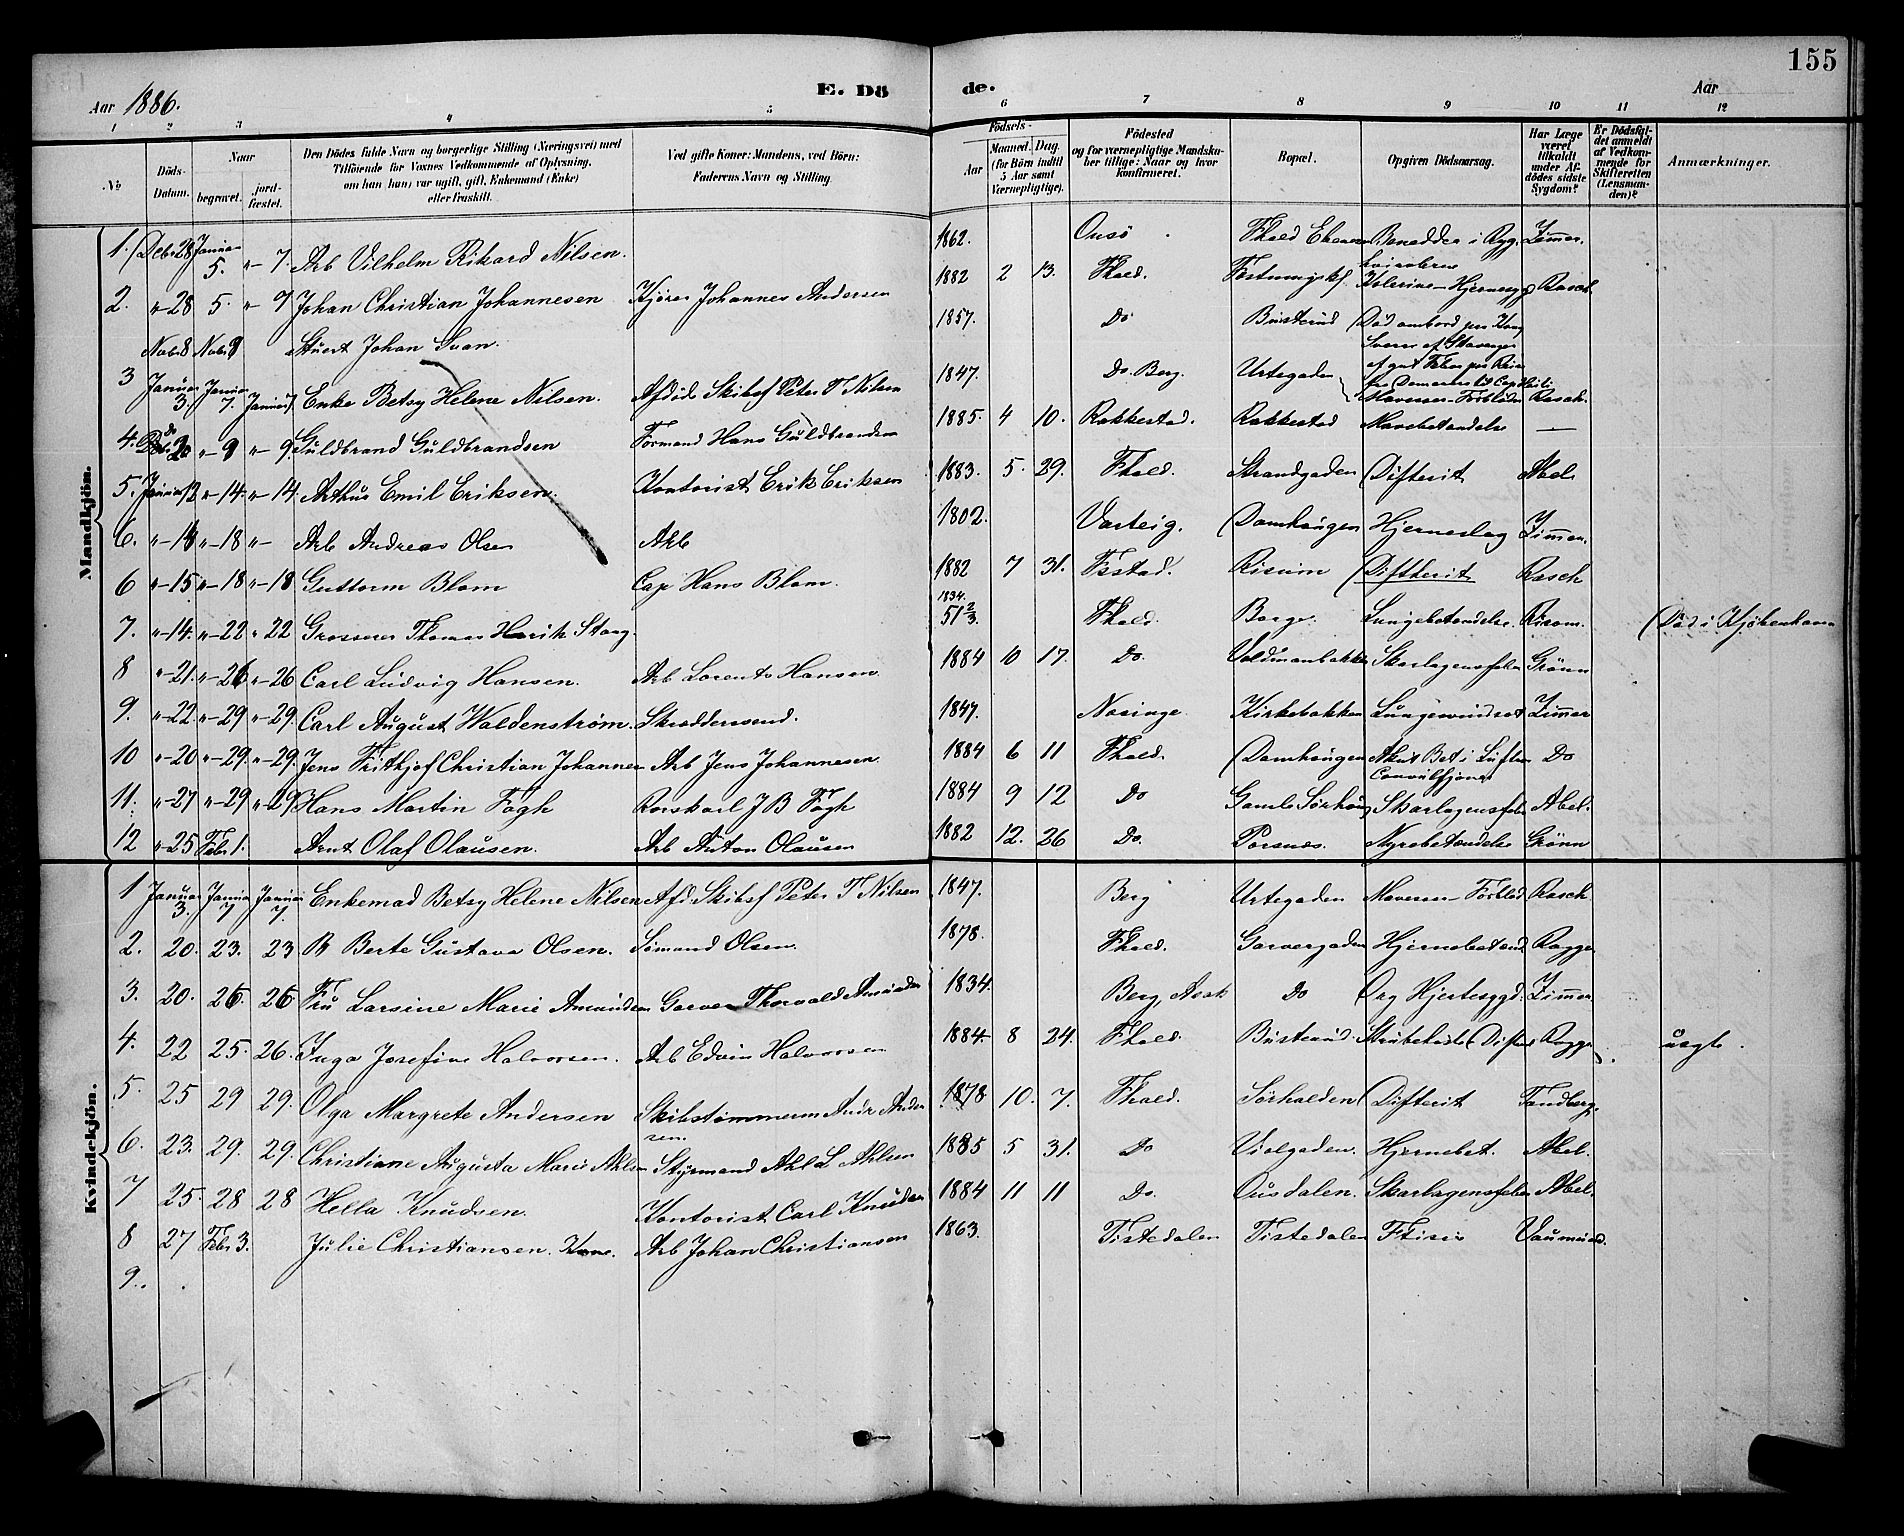 155
Aar 1886. E. Dö de. Aar
1 2 3 4 5 6 7 8 9 10 11 12
№
Döds-Datum.
Naar begravet. jord-fæstet.
Den Dödes fulde Navn og borgerlige Stilling (Næringsvei) med Tilföiende for Voxnes Vedkommende af Oplysning, om han (hun) var ugift, gift, Enkemand (Enke) eller fraskilt.
Ved gifte Koner: Mandens, ved Börn: Faderens Navn og Stilling.
Födsels- Aar Maaned. Dag. (for Börn indtil 5 Aar samt Værnepligtige).
Födested og for værnepligtige Mandskaber tillige: Naar og hvor konfirmeret.
Bopæl.
Opgiven Dödsaarsag.
Har Læge været tilkaldt under Afdödes sidste Sygdom?
Er Dödsfaldet anmeldt af Vedkommende for Skifteretten (Lensmanden)?
Anmærkninger.
Mandkjön.
1. Debr 28 Januar 5. "-7. Arb Vilhelm Rikard Nilsen. 1862. Onsö Fhald Benedder i Ryg Zimmer.
2. "-28 5. "-7 Johan Christian Johannesen Kjører Johannes Andersen 1882 2 13. Fhald. Kolerine-Hjernesyg Rasch
Nobr 8 Nobr 8 Stuert Johan Svan. 1857. Do Busterud Död ombord paa
3 Januar 3. Januar 7. Januar 7 Enke Betsy Helene Nilsen. Afdöd Skibsf Peter T Nilsen 1847. Do. Berg. Urtegaden Mavesaar-Forblödn Rasch.
4. Debr 20 "-9 "-9. Guldbrand Guldbrandsen Formand Hans Guldbrandsen 1885. 4 10. Rakkestad. Rakkestad Mavebetændelse —
5. Januar 12 "-14. "-14. Arthur Emil Eriksen. Kontorist Erik Eriksen 1883. 5. 29. Fhald. Strandgaden Difterit Abel
6. "-14 "-18 "- Arb Andreas Olsen Arb 1802. Varteig. Damhaugen Hjerneslag Zimmer.
6 "-15. "-18 "-18 Guttorm Blom Cap Hans Blom. 1882 7 31. Fstad. Risum Difterit Rasch
7. "-14. "-22 "22 Grosserer Thomas Henrik Stang. 1834. 51 2/3. Fhald. Borge. Lungebetændelse. Risom. Död i Kjøbenhavn
8 "-21. "-26 "-26 Carl Ludvig Hansen. Arb Lorents Hansen. 1884 10 17. Do. Voldmanbakken Skarlagensfeber Grönn
9. "-22. "-29 "-29. Carl August Waldenström. Skræddersvend. 1847. Nosinge. Kirkebakken Zimmer
10 "-20 "-29. "-29. Jens Frithjof Christian Johannes Arb Jens Johannesen. 1884 6 11 Fhald. Damhaugen Akut Bet i Luftrør Convulsjoner Do
11. "-27 "-29 "-29 Hans Martin Fogh Rorskarl J B Fogh 1884 9 12 Do Gamle Sørhaug Skarlagensfeber Abel.
12 "-25 Febr 1. Arnt Olaf Olausen. Arb Anton Olausen 1882 12. 26 Do. Porsnes. Nyrebetændelse Grönn
Kvindekjön.
1 Januar 3. Januar 7 Januar 7. Enkemad Betsy Helene Nilsen Afd Skibsf Peter T Nilsen 1847. Berg Urtegaden Mavesaar-Forblød Rasch
2. 20. 23. 23 Berte Gustava Olsen. Sømand Olsen. 1878. Fhald. Garvergaden Hjernebetænd Rogge
3. 20. 26. 26 Fru Larsine Marie Amundsen Garver Thorvald Amundsen 1834. Berg, Asak Do Org Hjertesygd. Zimmer.
4. 22 25. 26. Inga Josefine Halvorsen. Arb Edvin Halvorsen 1884 8 24. Fhald. Busterud Strubehoste (Difter Rogge uægte.
5. 25 29 29. Olga Margrete Andersen Skibstømmerm Andr Andersen. 1878 10. 7. Fhald. Sørhalden Difterit Tandberg.
6. 23. 29. 29. Christiane Augusta Marie Ahlsen Styrmand Ahl L Ahlsen 1885 5 31. Do Violgaden. Hjernebet. Abel.
7 25. 28 28 Hella Knudsen. Kontorist Carl Knudsen 1884 11 11 Do. Ousdalen. Skarlagensfeber Abel.
8 27 Febr 3. Julie Christiansen. Kone. Arb Johan Christiansen 1863. Tistedalen Tistedalen Ftisis
9.